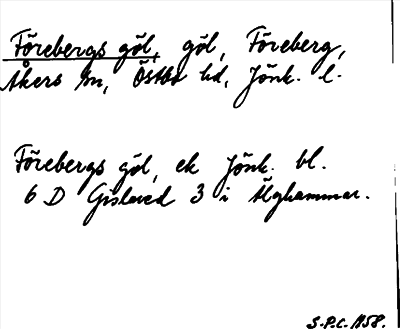 Förebergs göl, göl, Föreberg,
Åkers sn, Östbo hd, Jönk. l.
Förebergs göl, ek Jönk. bl.
6 D Gislaved 3 i Älghammar.
S.P.C. 1158.